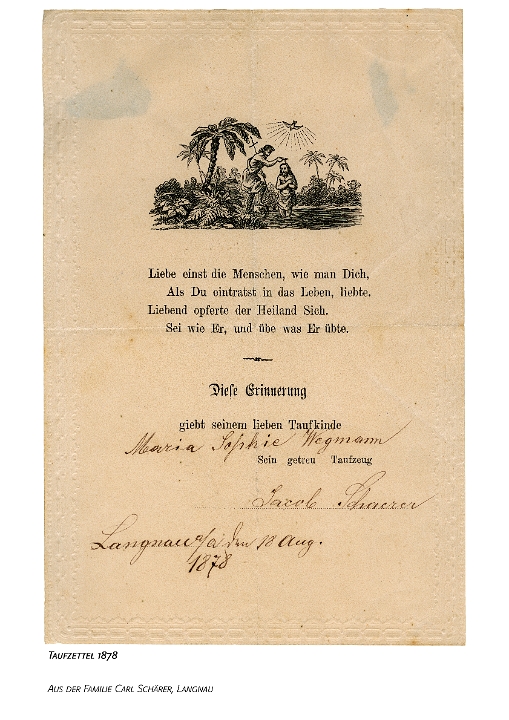 Liebe einst die Menschen, wie man Dich,
Als Du eintratst in das Leben, liebte.
Liebend opferte der Heiland Sich.
Sei wie Er, und übe was Er übte.
Diese Erinnerung
giebt seinem lieben Taufkinde
Maria Sophie Wegmann
Sein getreu Taufzeug
Jacob Schaerer
Langnau a/a den 18 Aug.
1878
TAUFZETTEL 1878
AUS DER FAMILIE CARL SCHÄRER, LANGNAU